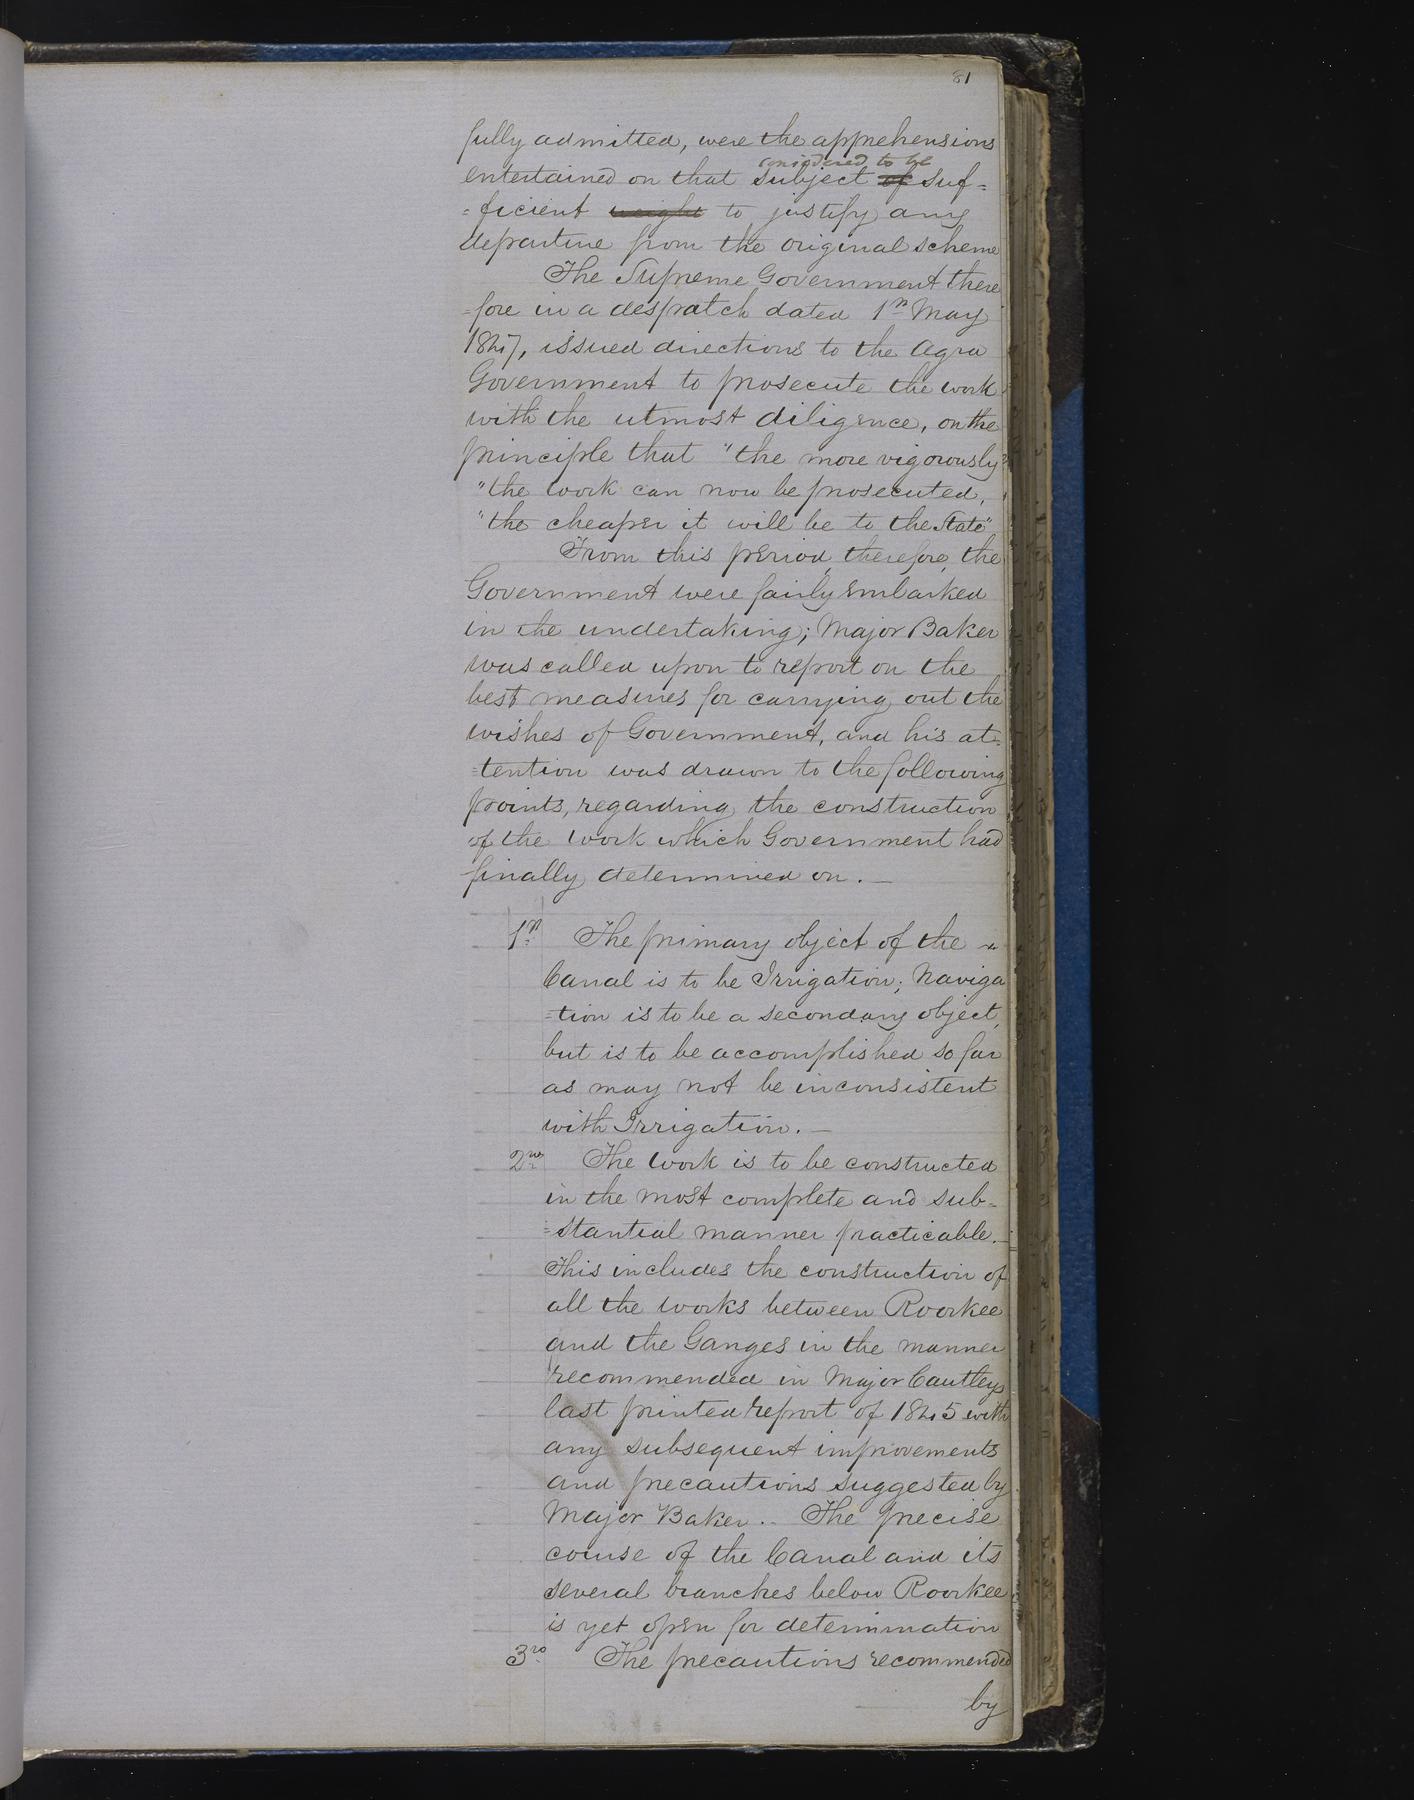 81
fully admitted, were the apprehensions
considered to be
entertained on that subject of suf=
=ficient weight to justify any
departure from the original scheme
The Supreme Government there
=fore in a despatch dated 1st May
1847, issued directions to the Agra
Government to prosecute the work
with the utmost diligence, on the
principle that "the more vigorously
"the work can now be prosecuted,
"the cheaper it will be to the State"
From this period, therefore, the
Government were fairly embarked
in the undertaking; Major Baker
was called upon to report on the
best measures for carrying out the
wishes of Government, and his at=
=tention was drawn to the following
points, regarding the construction
of the work which Government had
finally determined on. —
1st The primary object of the
Canal is to be Irrigation; Naviga
=tion is to be a secondary object,
but is to be accomplished so far
as may not be inconsistent
with Irrigation. —
2nd The work is to be constructed
in the most complete and sub=
=stantial manner practicable. —
This includes the construction of
all the works between Roorkee
and the Ganges in the manner
recommended in Major Cautleys
last printed report of 1845 with
any subsequent improvements
and precautions suggested by
Major Baker. . The precise
course of the Canal and its
several branches below Roorkee
is yet open for determination
3rd The precautions recommended
by